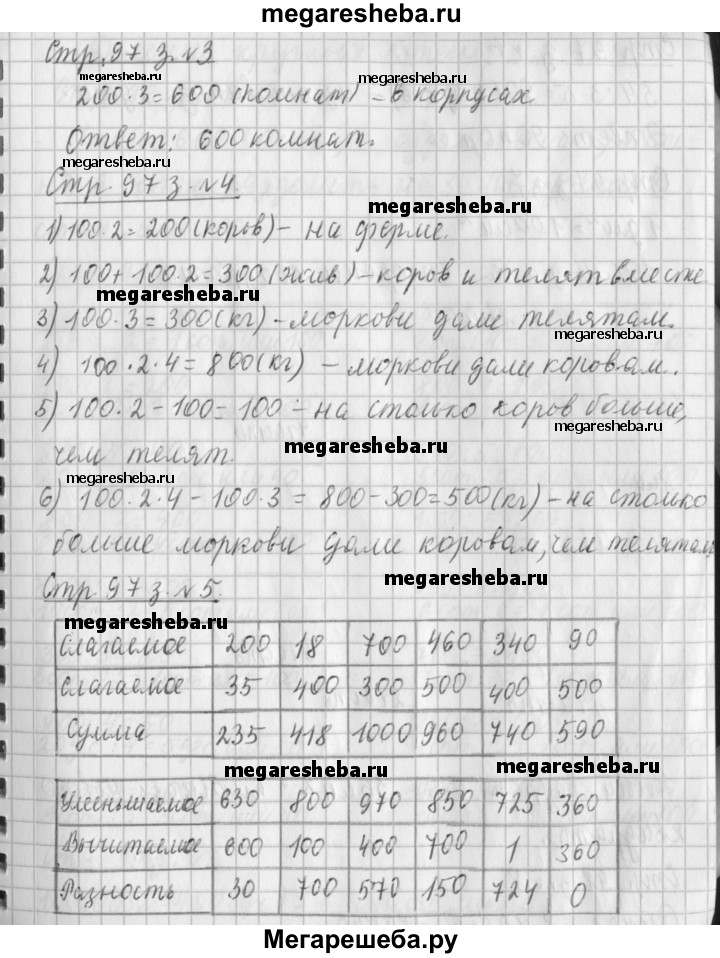 megaresheba.ru
Стр. 97 з. №3
megaresheba.ru
megaresheba.ru
200·3=600 (комнат) – 6 корпусах
Ответ: 600 комнат.
megaresheba.ru
Стр. 97 з. №4.
megaresheba.ru
1) 100·2=200 (коров) – на ферме.
2) 100+100·2=300 (жив) – коров и телят вместе
megaresheba.ru
3) 100·3=300 (кг) – моркови дали телятам.
megaresheba.ru
4) 100·2·4=800 (кг) – моркови дали коровам.
5) 100·2-100=100 – на столько коров больше,
megaresheba.ru
megaresheba.ru
чем телят.
megaresheba.ru
6) 100·2·4-100·3=800-300=500 (кг) – на столько
больше моркови дали коровам, чем телятам
megaresheba.ru
Стр. 97 з. №5.
megaresheba.ru
Слагаемое 200 18 700 460 340 90
Слагаемое 35 400 300 500 400 500
Сумма 235 418 1000 960 740 590
megaresheba.ru
megaresheba.ru
Уменьшаемое 630 800 970 850 725 360
Вычитаемое 600 100 400 700 1 360
Разность 30 700 570 150 724 0
Мегарешеба.ру